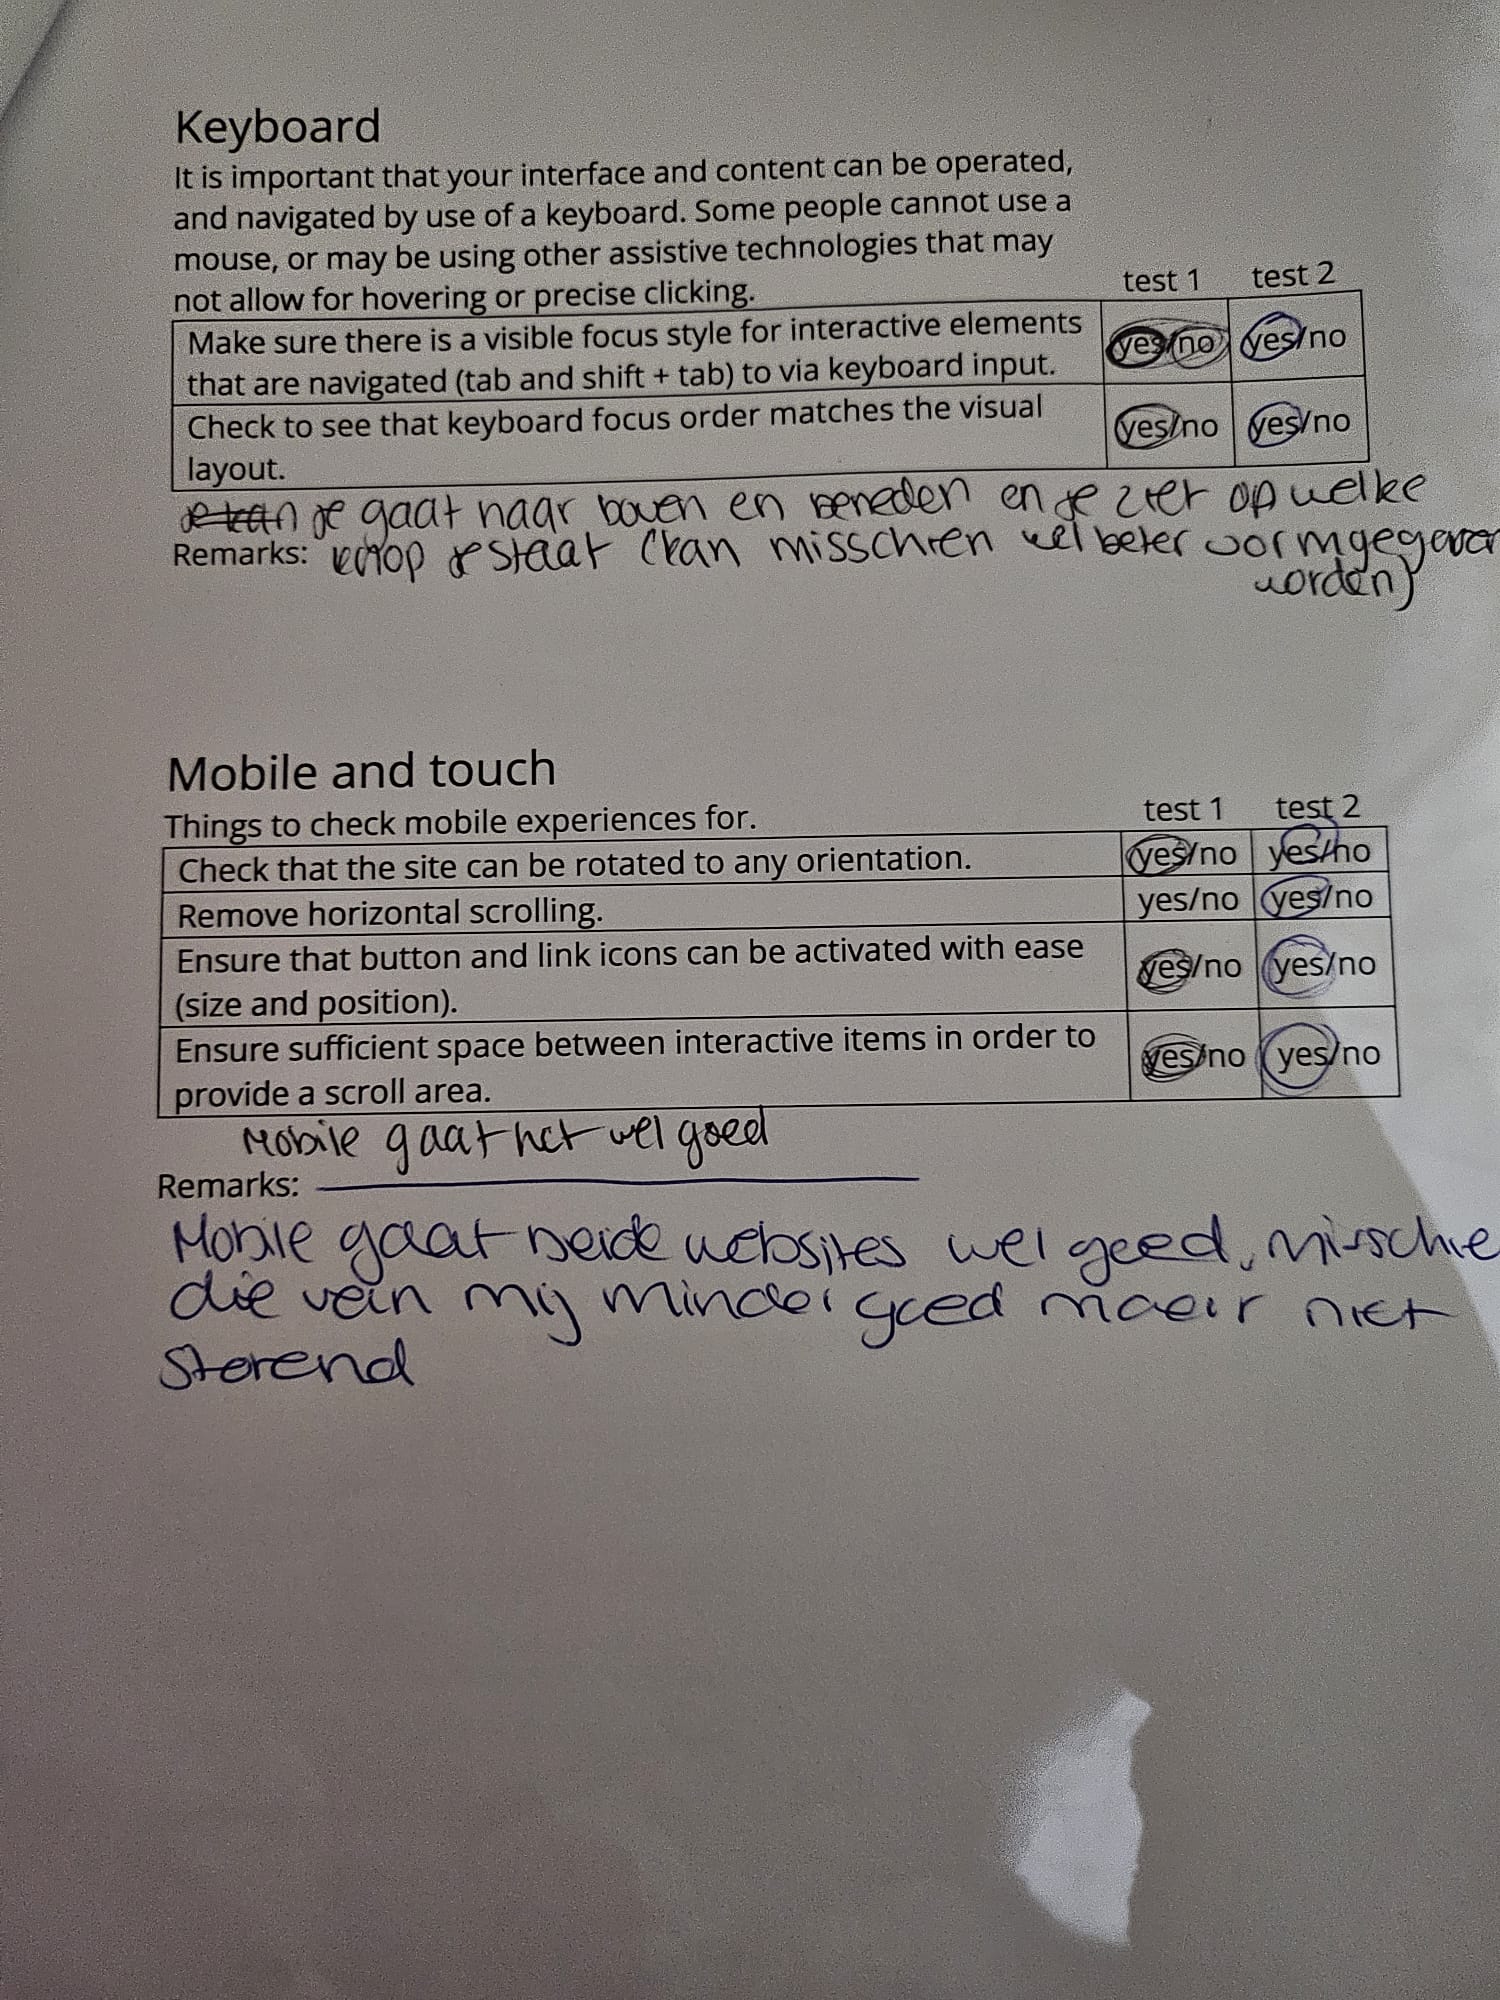 Keyboard
It is important that your interface and content can be operated,
and navigated by use of a keyboard. Some people cannot use a
mouse, or may be using other assistive technologies that may
not allow for hovering or precise clicking.
test 1 test 2
Make sure there is a visible focus style for interactive elements
that are navigated (tab and shift + tab) to via keyboard input.
yes/no yes/no
Check to see that keyboard focus order matches the visual
layout.
yes/no yes/no
je kan je gaat naar boven en beneden en je ziet op welke
Remarks: knop je staat (kan misschien wel beter vormgegeven
worden)
Mobile and touch
Things to check mobile experiences for.
test 1 test 2
Check that the site can be rotated to any orientation. yes/no yes/no
Remove horizontal scrolling. yes/no yes/no
Ensure that button and link icons can be activated with ease
(size and position).
yes/no yes/no
Ensure sufficient space between interactive items in order to
provide a scroll area.
yes/no yes/no
Mobile gaat het wel goed
Remarks:
Mobile gaat beide websites wel goed, misschie
die van mij minder goed maar niet
storend